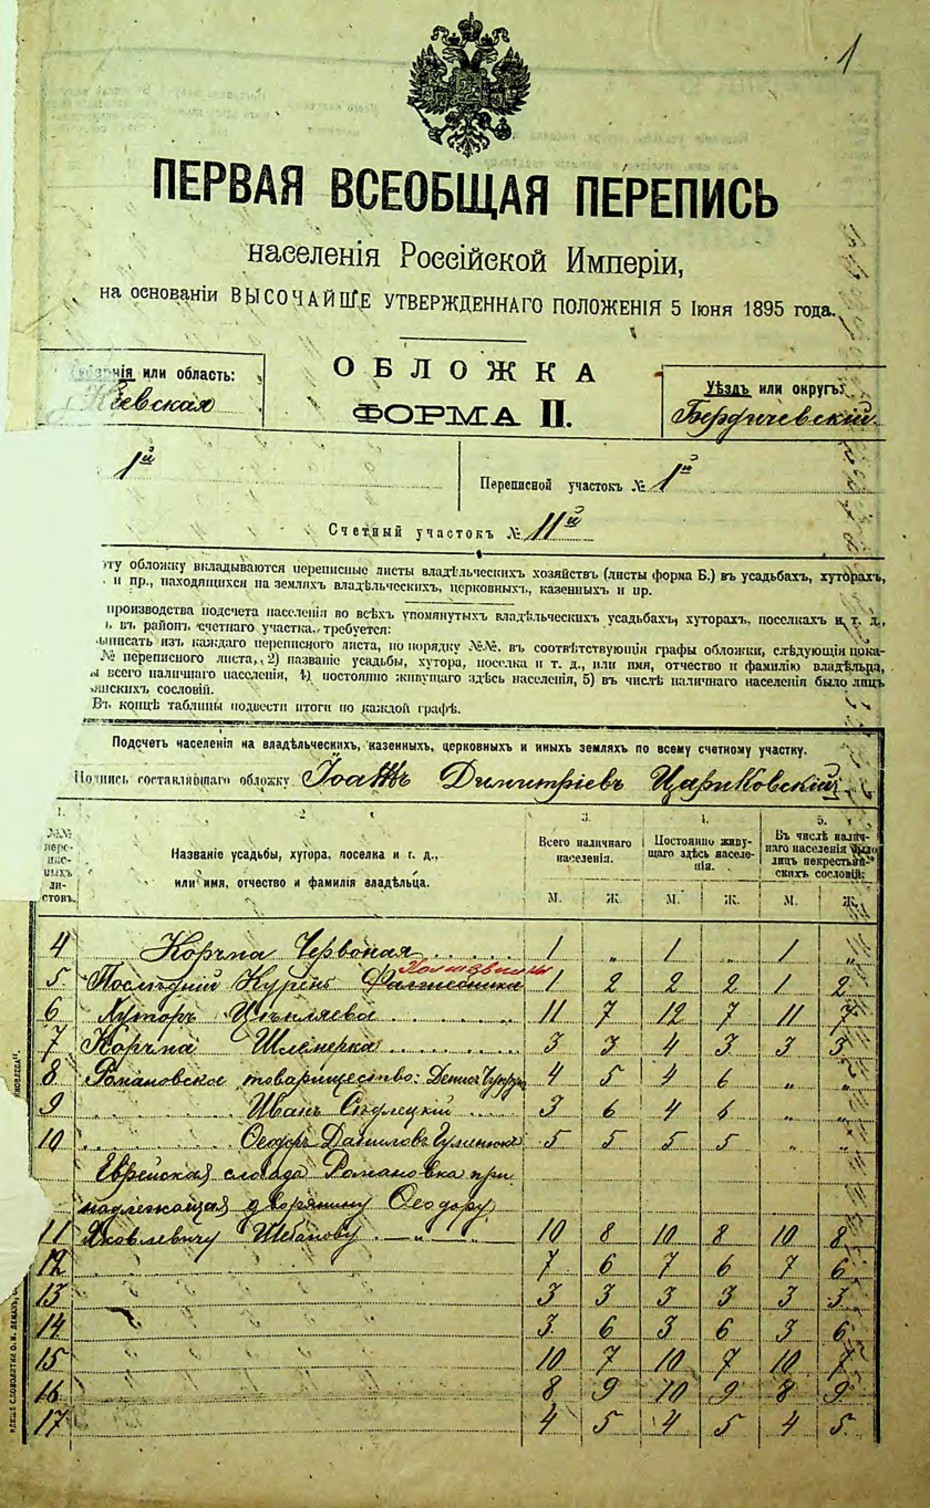 1
ПЕРВАЯ ВСЕОБЩАЯ ПЕРЕПИСЬ
населенія Россійской Имперіи,
на основаніи ВЫСОЧАЙШЕ УТВЕРЖДЕННАГО ПОЛОЖЕНІЯ 5 Іюня 1895 года.
ОБЛОЖКА
ФОРМА II.
или область:
Кіевская
Уѣздъ или округъ:
Бердичевскій
1й
Переписной участокъ № 1й
Счетный участокъ № 11й
ту обложку вкладываются переписные листы владѣльческихъ хозяйствъ (листы форма Б.) въ усадьбахъ, хуторахъ,
и пр., находящихся на земляхъ владѣльческихъ, церковныхъ, казенныхъ и пр.
производства подсчета населенія во всѣхъ упомянутыхъ владѣльческихъ усадьбахъ, хуторахъ, поселкахъ и т. д.,
въ районѣ счетнаго участка, требуется:
выписать изъ каждаго переписнаго листа, по порядку №№, въ соотвѣтствующія графы обложки, слѣдующія пока-
№ переписного листа, 2) названіе усадьбы, хутора, поселка и т. д., или имя, отчество и фамилію владѣльца,
всего наличнаго населенія, 4) постоянно живущаго здѣсь населенія, 5) въ числѣ наличнаго населенія было лицъ
янскихъ сословій.
Въ концѣ таблицы подвести итоги по каждой графѣ.
Подсчетъ населенія на владѣльческихъ, казенныхъ, церковныхъ и иныхъ земляхъ по всему счетному участку.
Подпись составлявшаго обложку Іоаннъ Димитріевъ Цариковскій
1. 2 3. 4. 5.
№№ пере-пис-ныхъ ли-стовъ.
Названіе усадьбы, хутора, поселка и т. д.,
или имя, отчество и фамилія владѣльца.
Всего наличнаго населенія.
Постоянно живу-щаго здѣсь населе-нія.
Въ числѣ налич-наго населенія было лицъ некрестьян-скихъ сословій:
М. Ж. М. Ж. М. Ж.
4 Корчма Червоная 1 „ 1 „ 1 „
5. Послѣдній Курень 1 2 2 2 1 2
6 Хуторъ 11 7 12 7 11 7
7 Корчма Шлемерка 3 3 4 3 3 3
8 Романовское товарищество: Денис 4 5 4 6 „ „
9 Иванъ 3 6 4 6 „ „
10 Ѳеодоръ Даниловъ 5 5 5 5 „ „
Еврейская слобода Романовка при
надлежащая дворянину Ѳеодору
11 Яковлевичу Шебанову 10 8 10 8 10 8
12 7 6 7 6 7 6
13 3 3 3 3 3 3
14 3 6 3 6 3 6
15 10 7 10 7 10 7
16 8 9 10 9 8 9
17 4 5 4 5 4 5